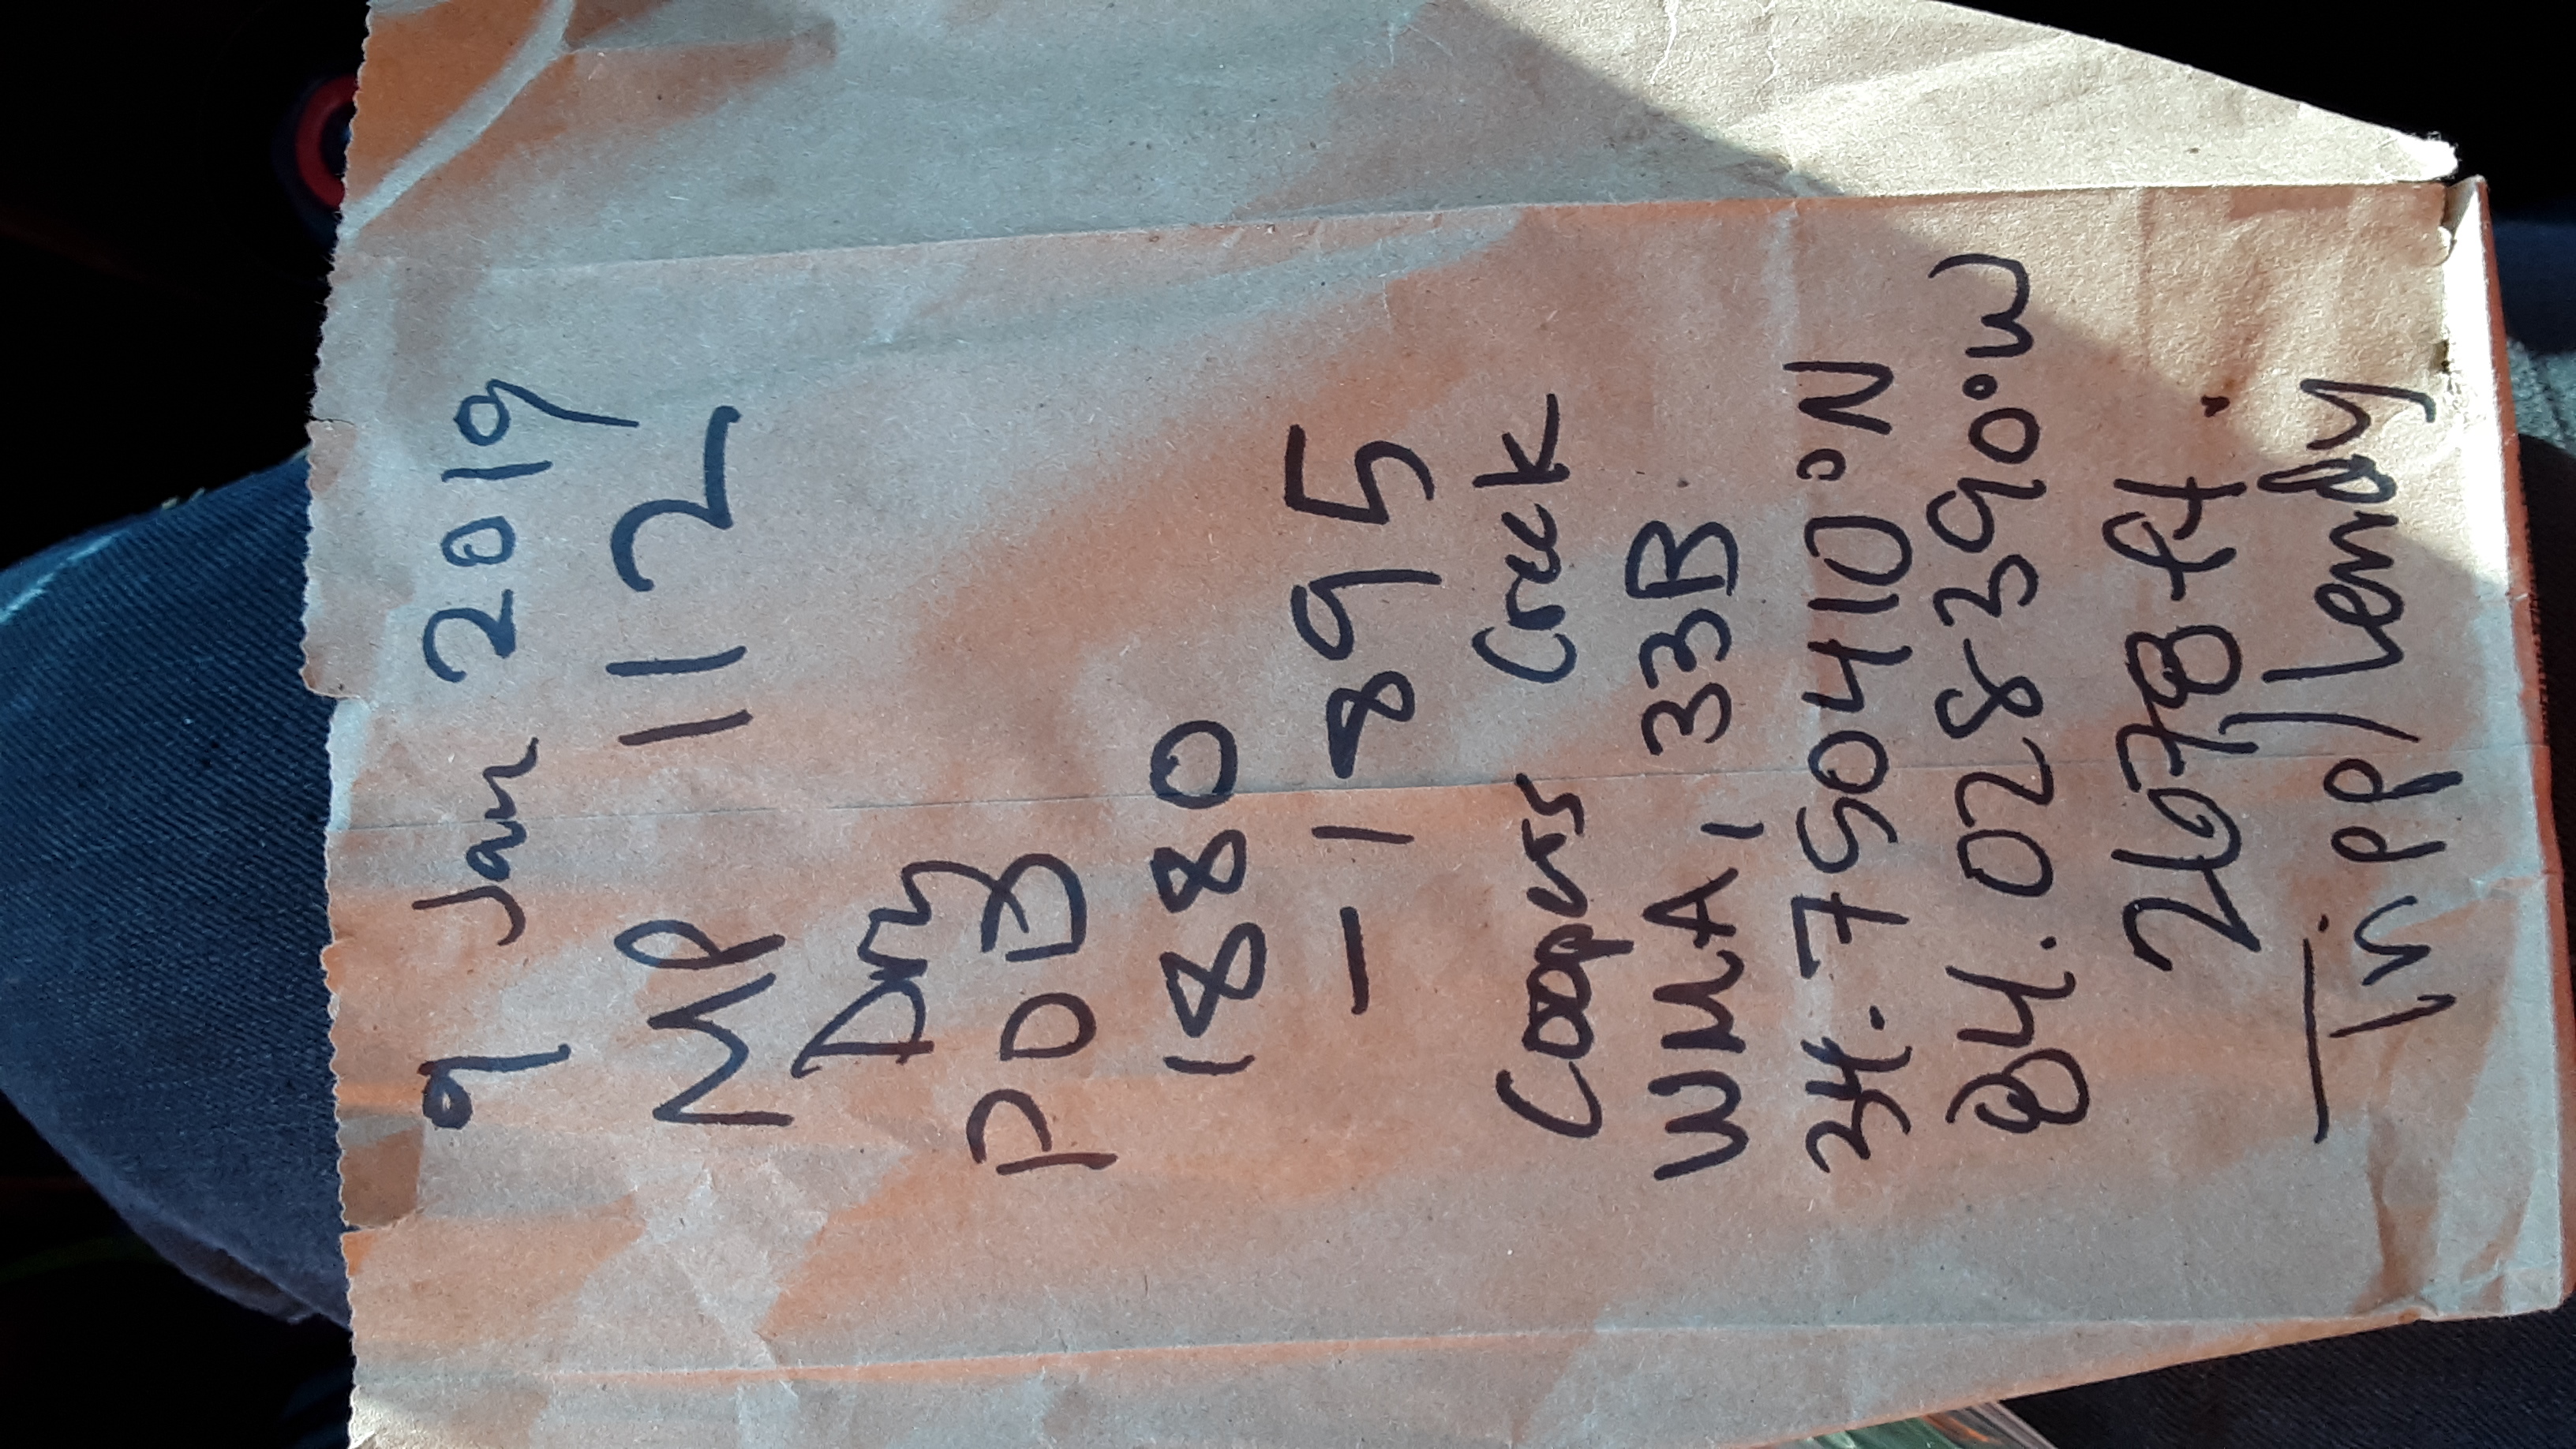 9 Jan 2019
MP 112
Dry
PDB
1880
- 1895
Coopers Creek
WMA, 33B
34.750410°N
84.028390°W
2678 ft.
Tripp/Lendy